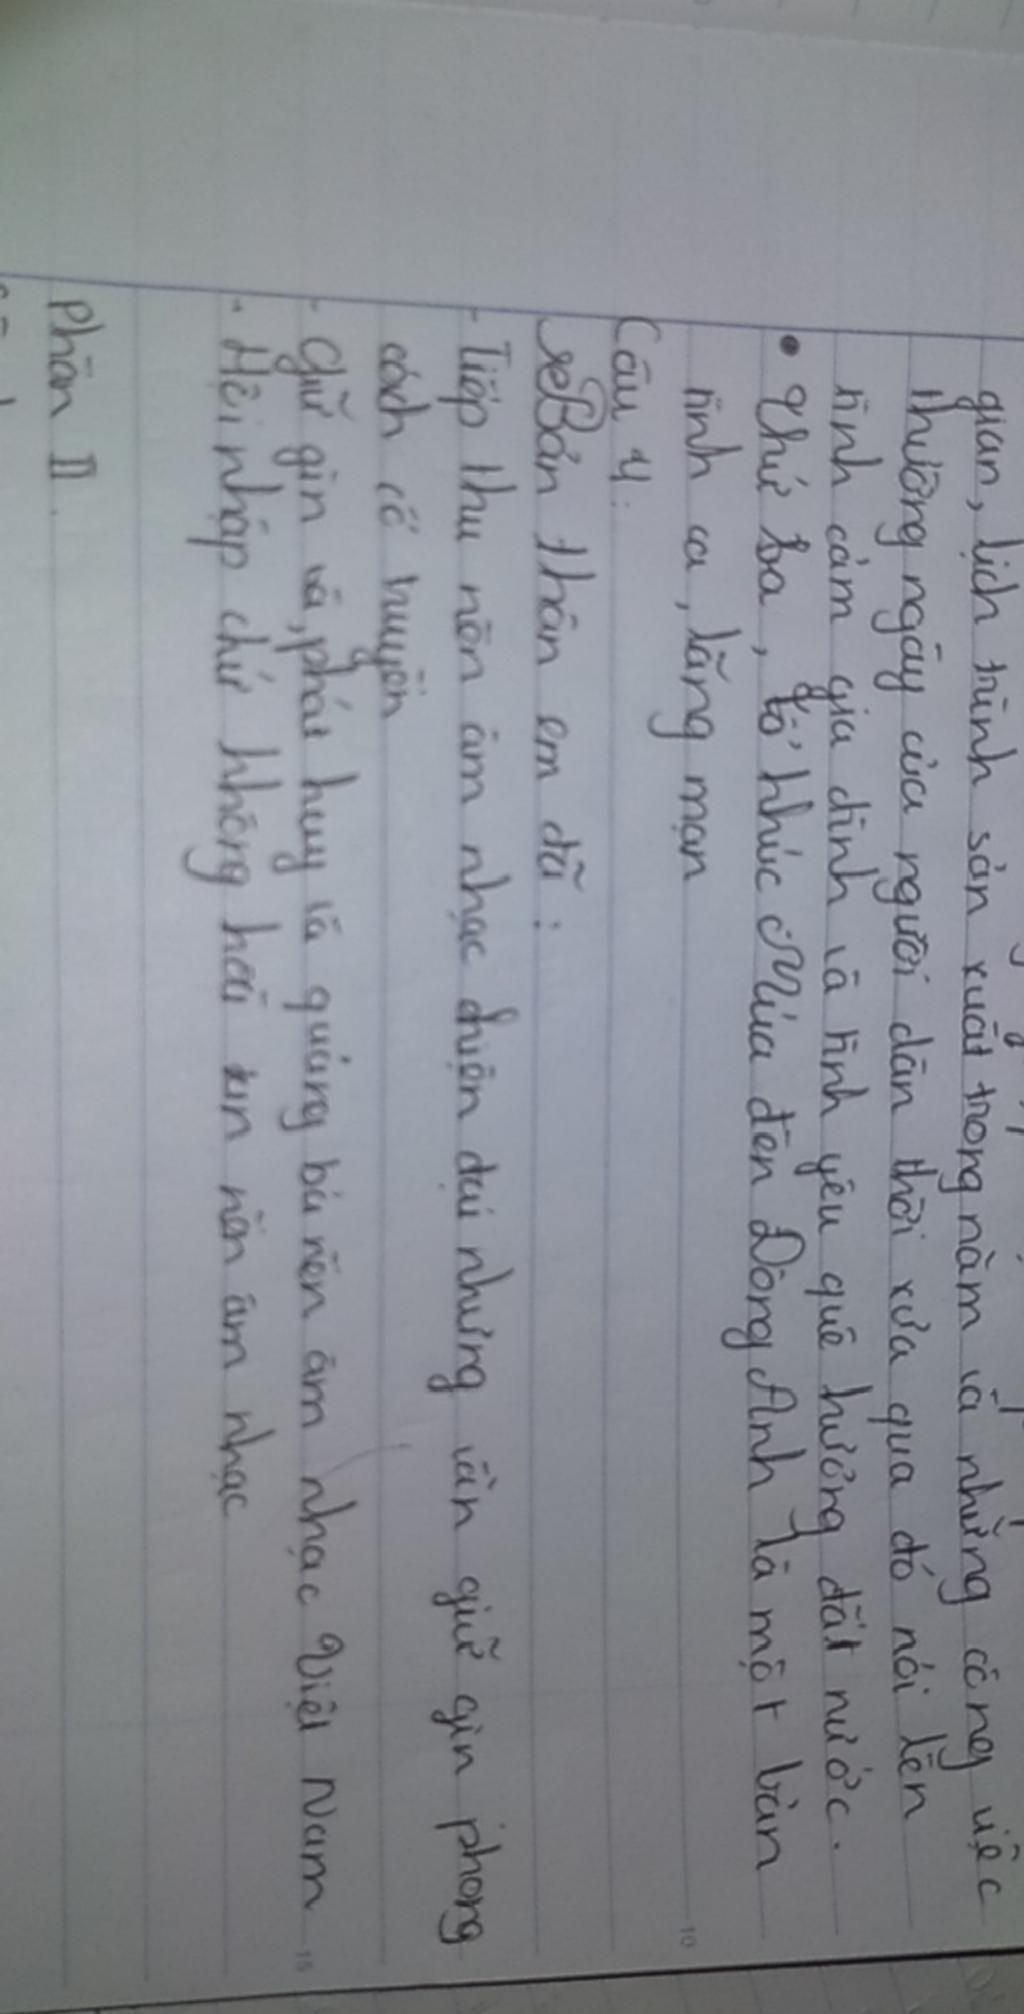 quan, lịch trình sản xuất trong năm và những công việc
thường ngày của người dân thời xưa qua đó nói lên
tình cảm gia đình và tình yêu quê hương đất nước.
• Thứ ba, tổ khúc Múa đèn Đông Anh là một bản
tình ca, lãng mạn
Câu 4:
Bản thân em đã:
- Tiếp thu nền âm nhạc hiện đại nhưng vẫn giữ gìn phong
cách cổ truyền
- Giữ gìn và, phát huy và quảng bá nền âm nhạc Việt Nam
- Hội nhập chứ không hòa tan nền âm nhạc
Phần II.
10
15